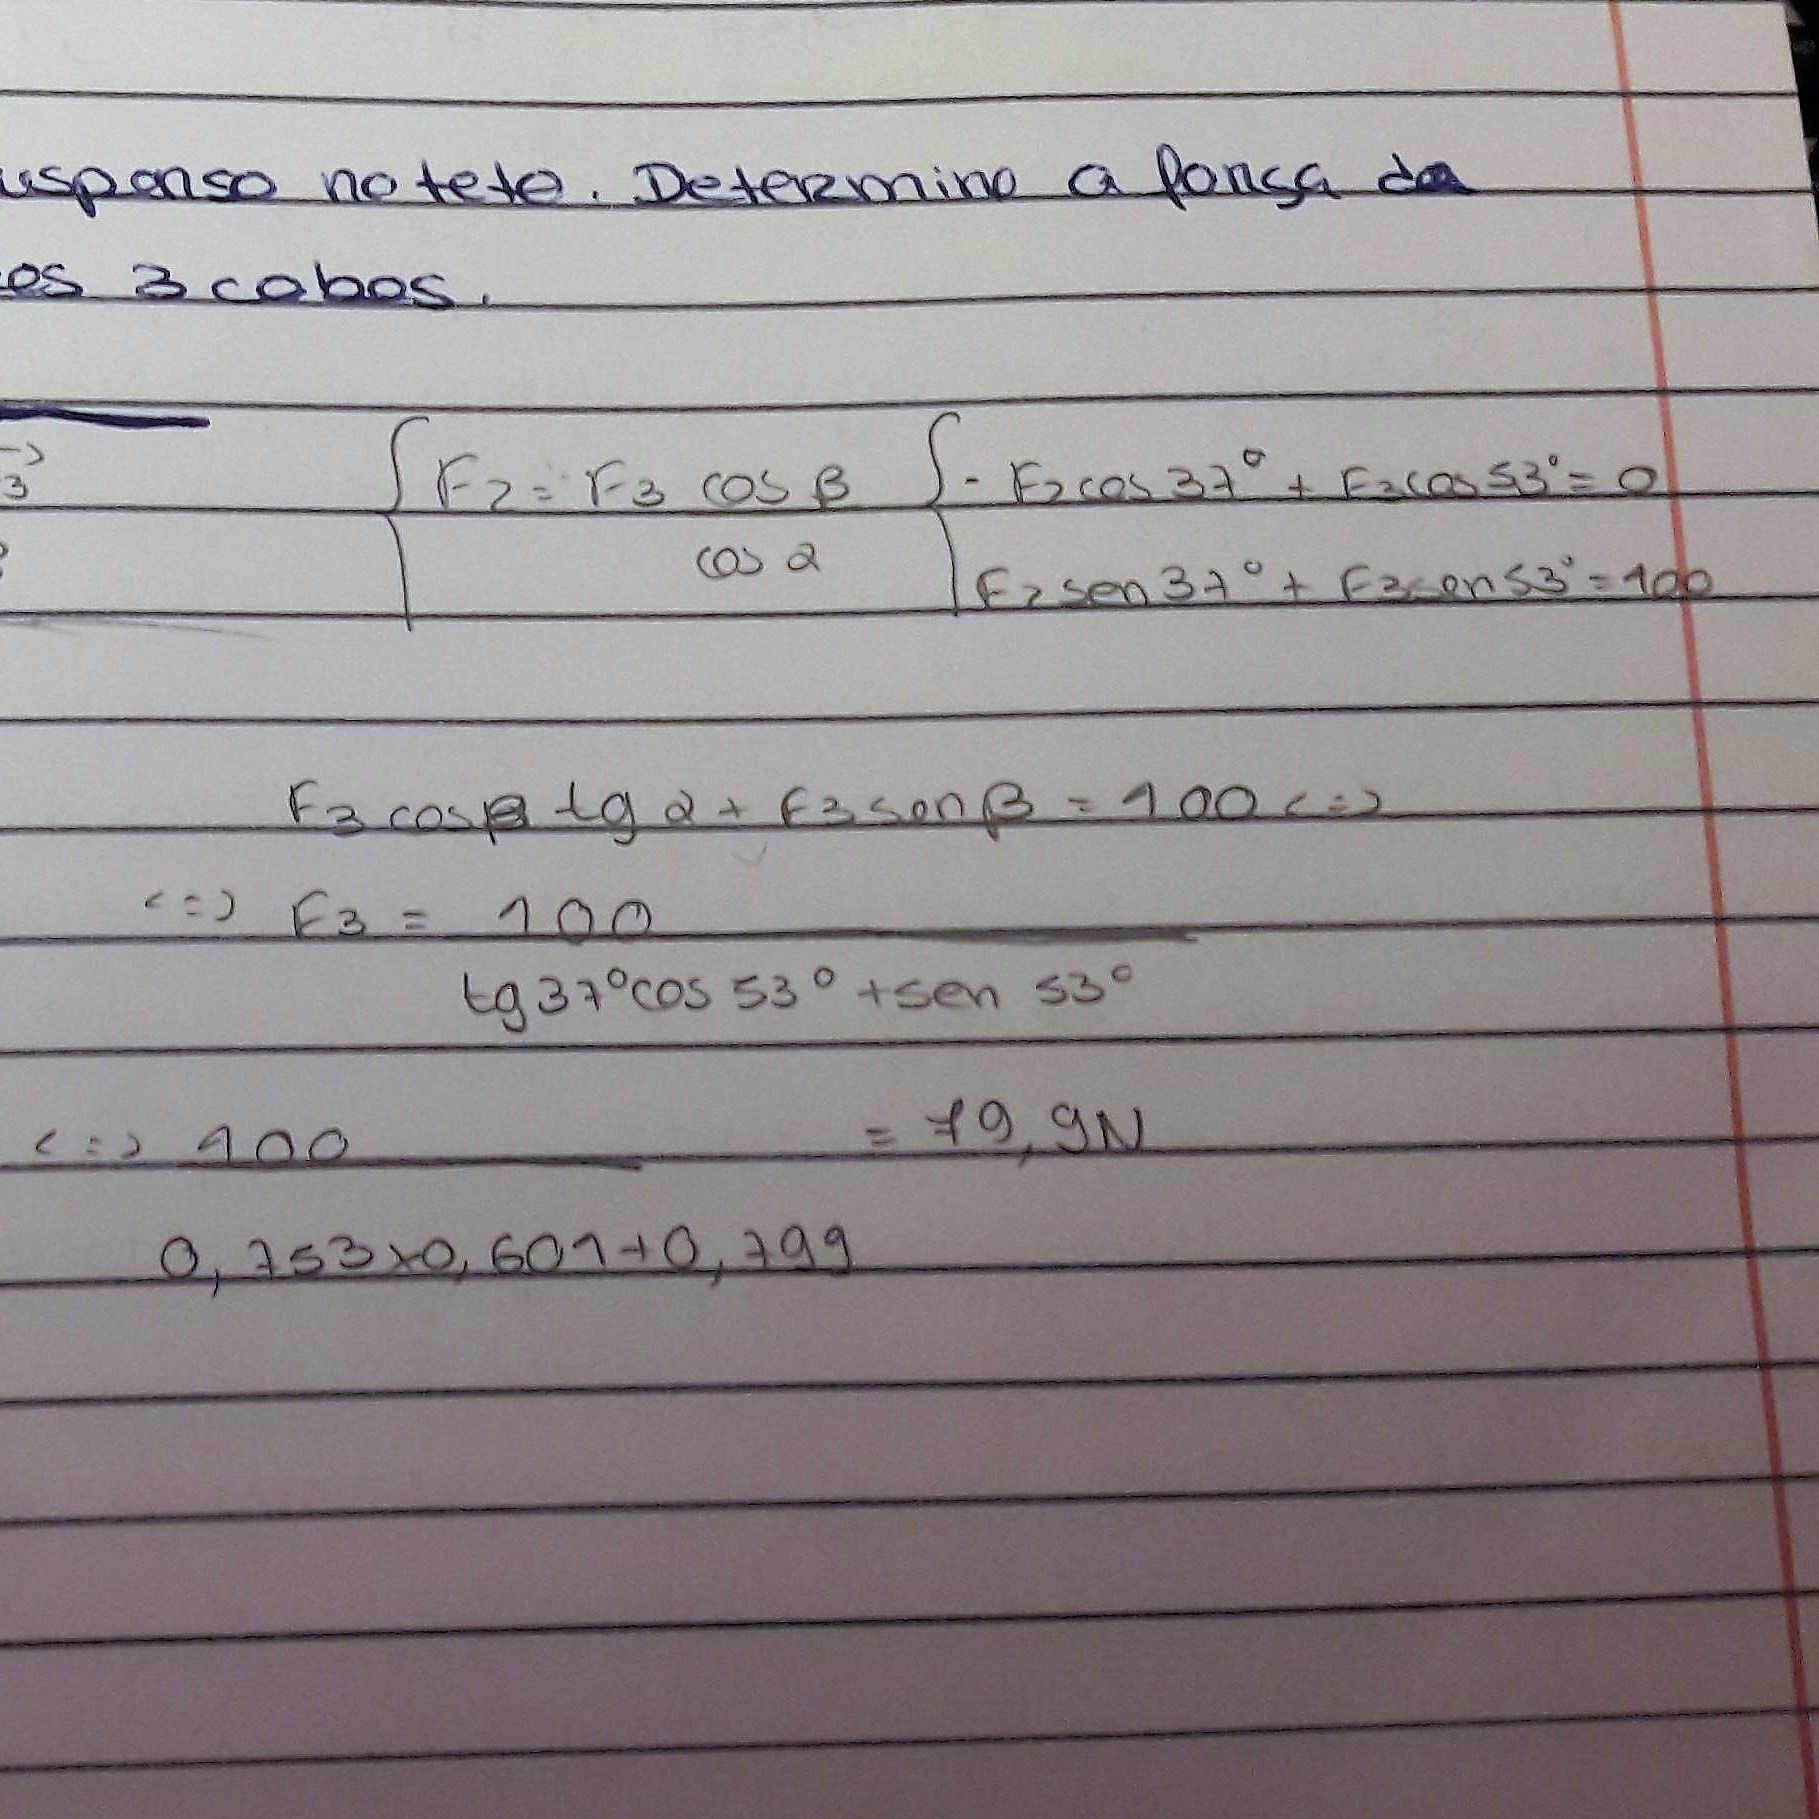 uspenso no teto. Determine a força da
os 3 cabos.
3
F2 = F3 cos β
cos α
- F2 cos 37° + F3 cos 53° = 0
F2 sen 37° + F3 sen 53° = 100
F3 cosβ tg α + F3 sen β = 100 <=>
<=> F3 = 100
tg 37° cos 53° + sen 53°
<=> 100 = 79,9N
0,753x0,601+0,799